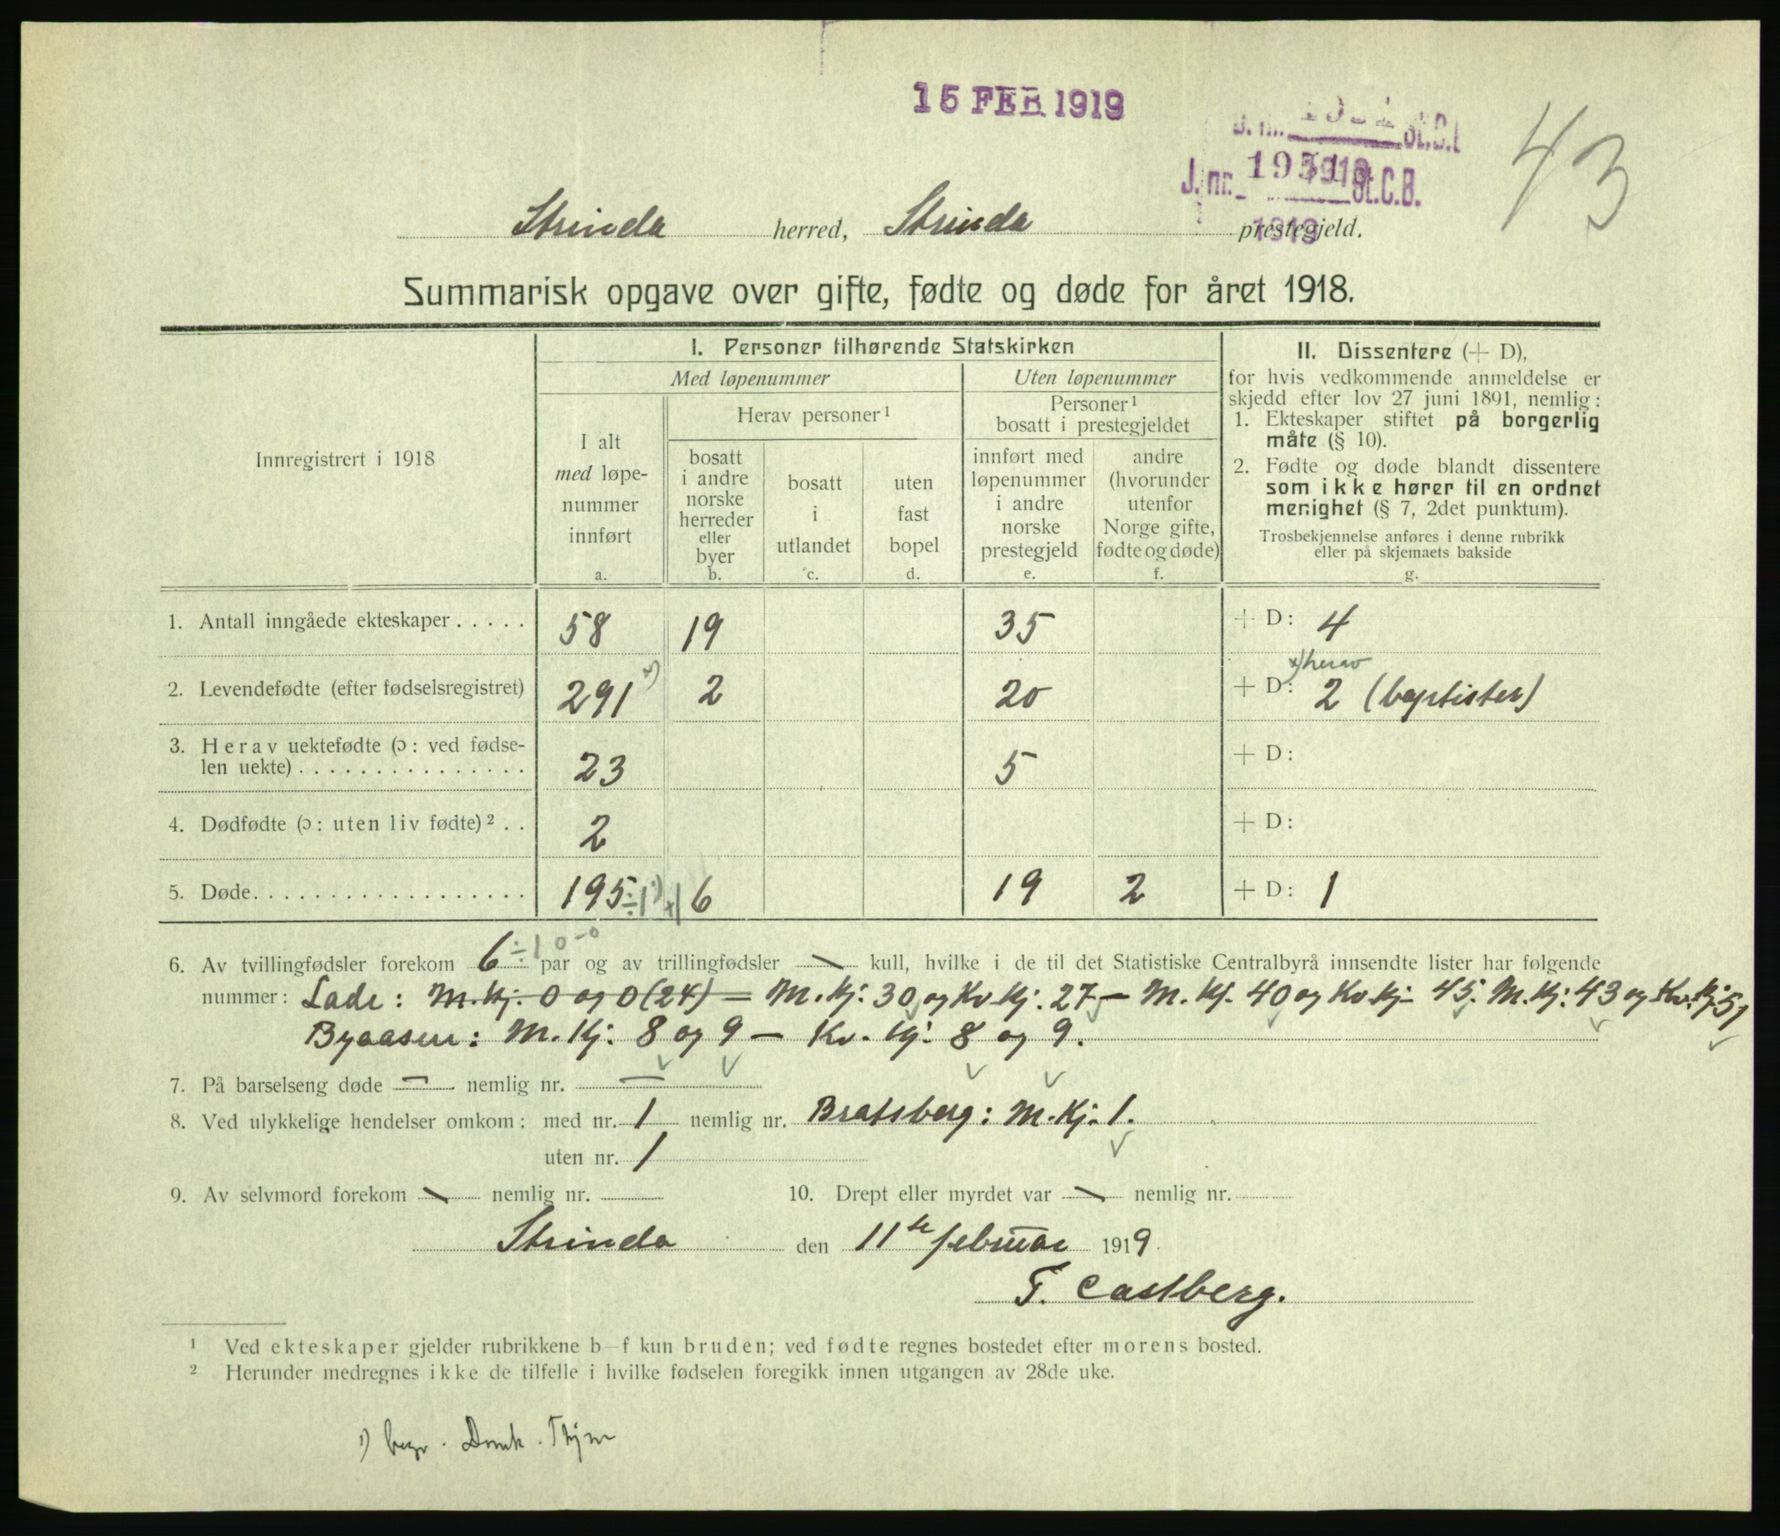 15 FEB 1919
J. nr. St.C.B.
1919
43
Strinda herred, Strinda prestegjeld.
Summarisk opgave over gifte, fødte og døde for året 1918.
Innregistrert i 1918
I. Personer tilhørende Statskirken
Med løpenummer
Uten løpenummer
I alt
med løpe-
nummer
innført
a.
Herav personer¹
bosatt
i andre
norske
herreder
eller
byer
b.
bosatt
i
utlandet
c.
uten
fast
bopel
d.
Personer¹
bosatt i prestegjeldet
innført med
løpenummer
i andre
norske
prestegjeld
e.
andre
(hvorunder
utenfor
Norge gifte,
fødte og døde)
f.
II. Dissentere (+ D),
for hvis vedkommende anmeldelse er
skjedd efter lov 27 juni 1891, nemlig:
1. Ekteskaper stiftet på borgerlig
måte (§ 10).
2. Fødte og døde blandt dissentere
som ikke hører til en ordnet
menighet (§ 7, 2det punktum).
Trosbekjennelse anføres i denne rubrikk
eller på skjemaets bakside
g.
1. Antall inngåede ekteskaper . . . . . 58 19 35 + D: 4
x) herav
2. Levendefødte (efter fødselsregistret) 291 x) 2 20 + D: 2 (baptister)
3. Herav uektefødte (ɔ: ved fødse-
len uekte) . . . . . . . . . . . . . . . 23 5 + D:
4. Dødfødte (ɔ: uten liv fødte)² . . 2 + D:
5. Døde. . . . . . . . . . . . . . . . . . 195 ÷1 ¹) +1 6 19 2 + D: 1
6. Av tvillingfødsler forekom 6 ÷1 0-0 par og av trillingfødsler — kull, hvilke i de til det Statistiske Centralbyrå innsendte lister har følgende
nummer: Lade: M. kj. 0 og 0 (24) — M. kj. 30 og Kv. kj. 27 — M. kj. 40 og Kv. kj. 45. M. kj: 43 og Kv. kj. 51
Byaasen: M. kj. 8 og 9 — Kv. kj. 8 og 9.
7. På barselseng døde — nemlig nr. —
8. Ved ulykkelige hendelser omkom: med nr. 1 nemlig nr. Bratsberg: M. kj. 1.
uten nr. 1
9. Av selvmord forekom — nemlig nr. 10. Drept eller myrdet var — nemlig nr.
Strinda den 11te februar 1919
F. Castberg.
¹ Ved ekteskaper gjelder rubrikkene b—f kun bruden; ved fødte regnes bostedet efter morens bosted.
² Herunder medregnes ikke de tilfelle i hvilke fødselen foregikk innen utgangen av 28de uke.
¹) begr. Domk. Thjm